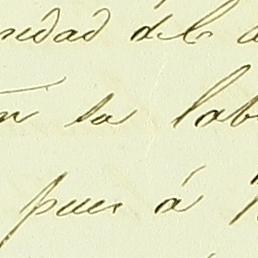 nedad de la
n la lab
pues á